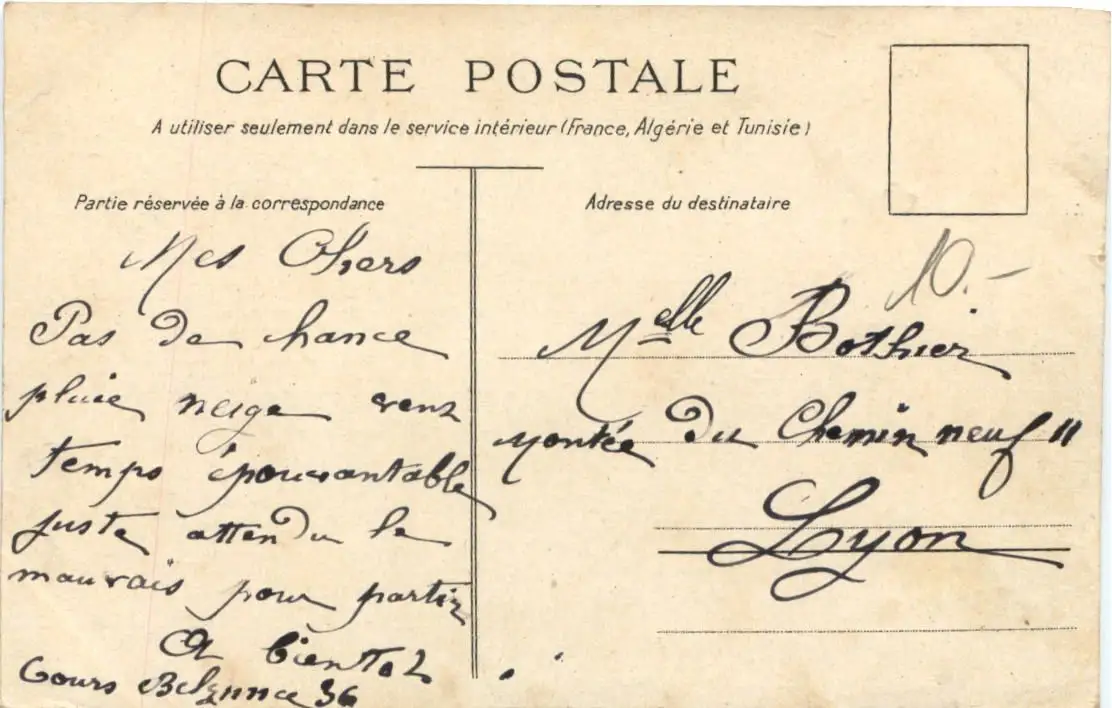 CARTE POSTALE
A utiliser seulement dans le service intérieur (France, Algérie et Tunisie)
Partie réservée à la correspondance
Mes Chers
Pas de chance
pluie neige vent
temps épouvantable
juste attendu le
mauvais pour partir
A bientot
Cours 36
Adresse du destinataire
10.-
Melle Bothier
montée du Chemin neuf 11
Lyon